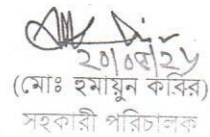 ২০/০৫/২৮
(মোঃ হুমায়ুন কবির)
সহকারী পরিচালক